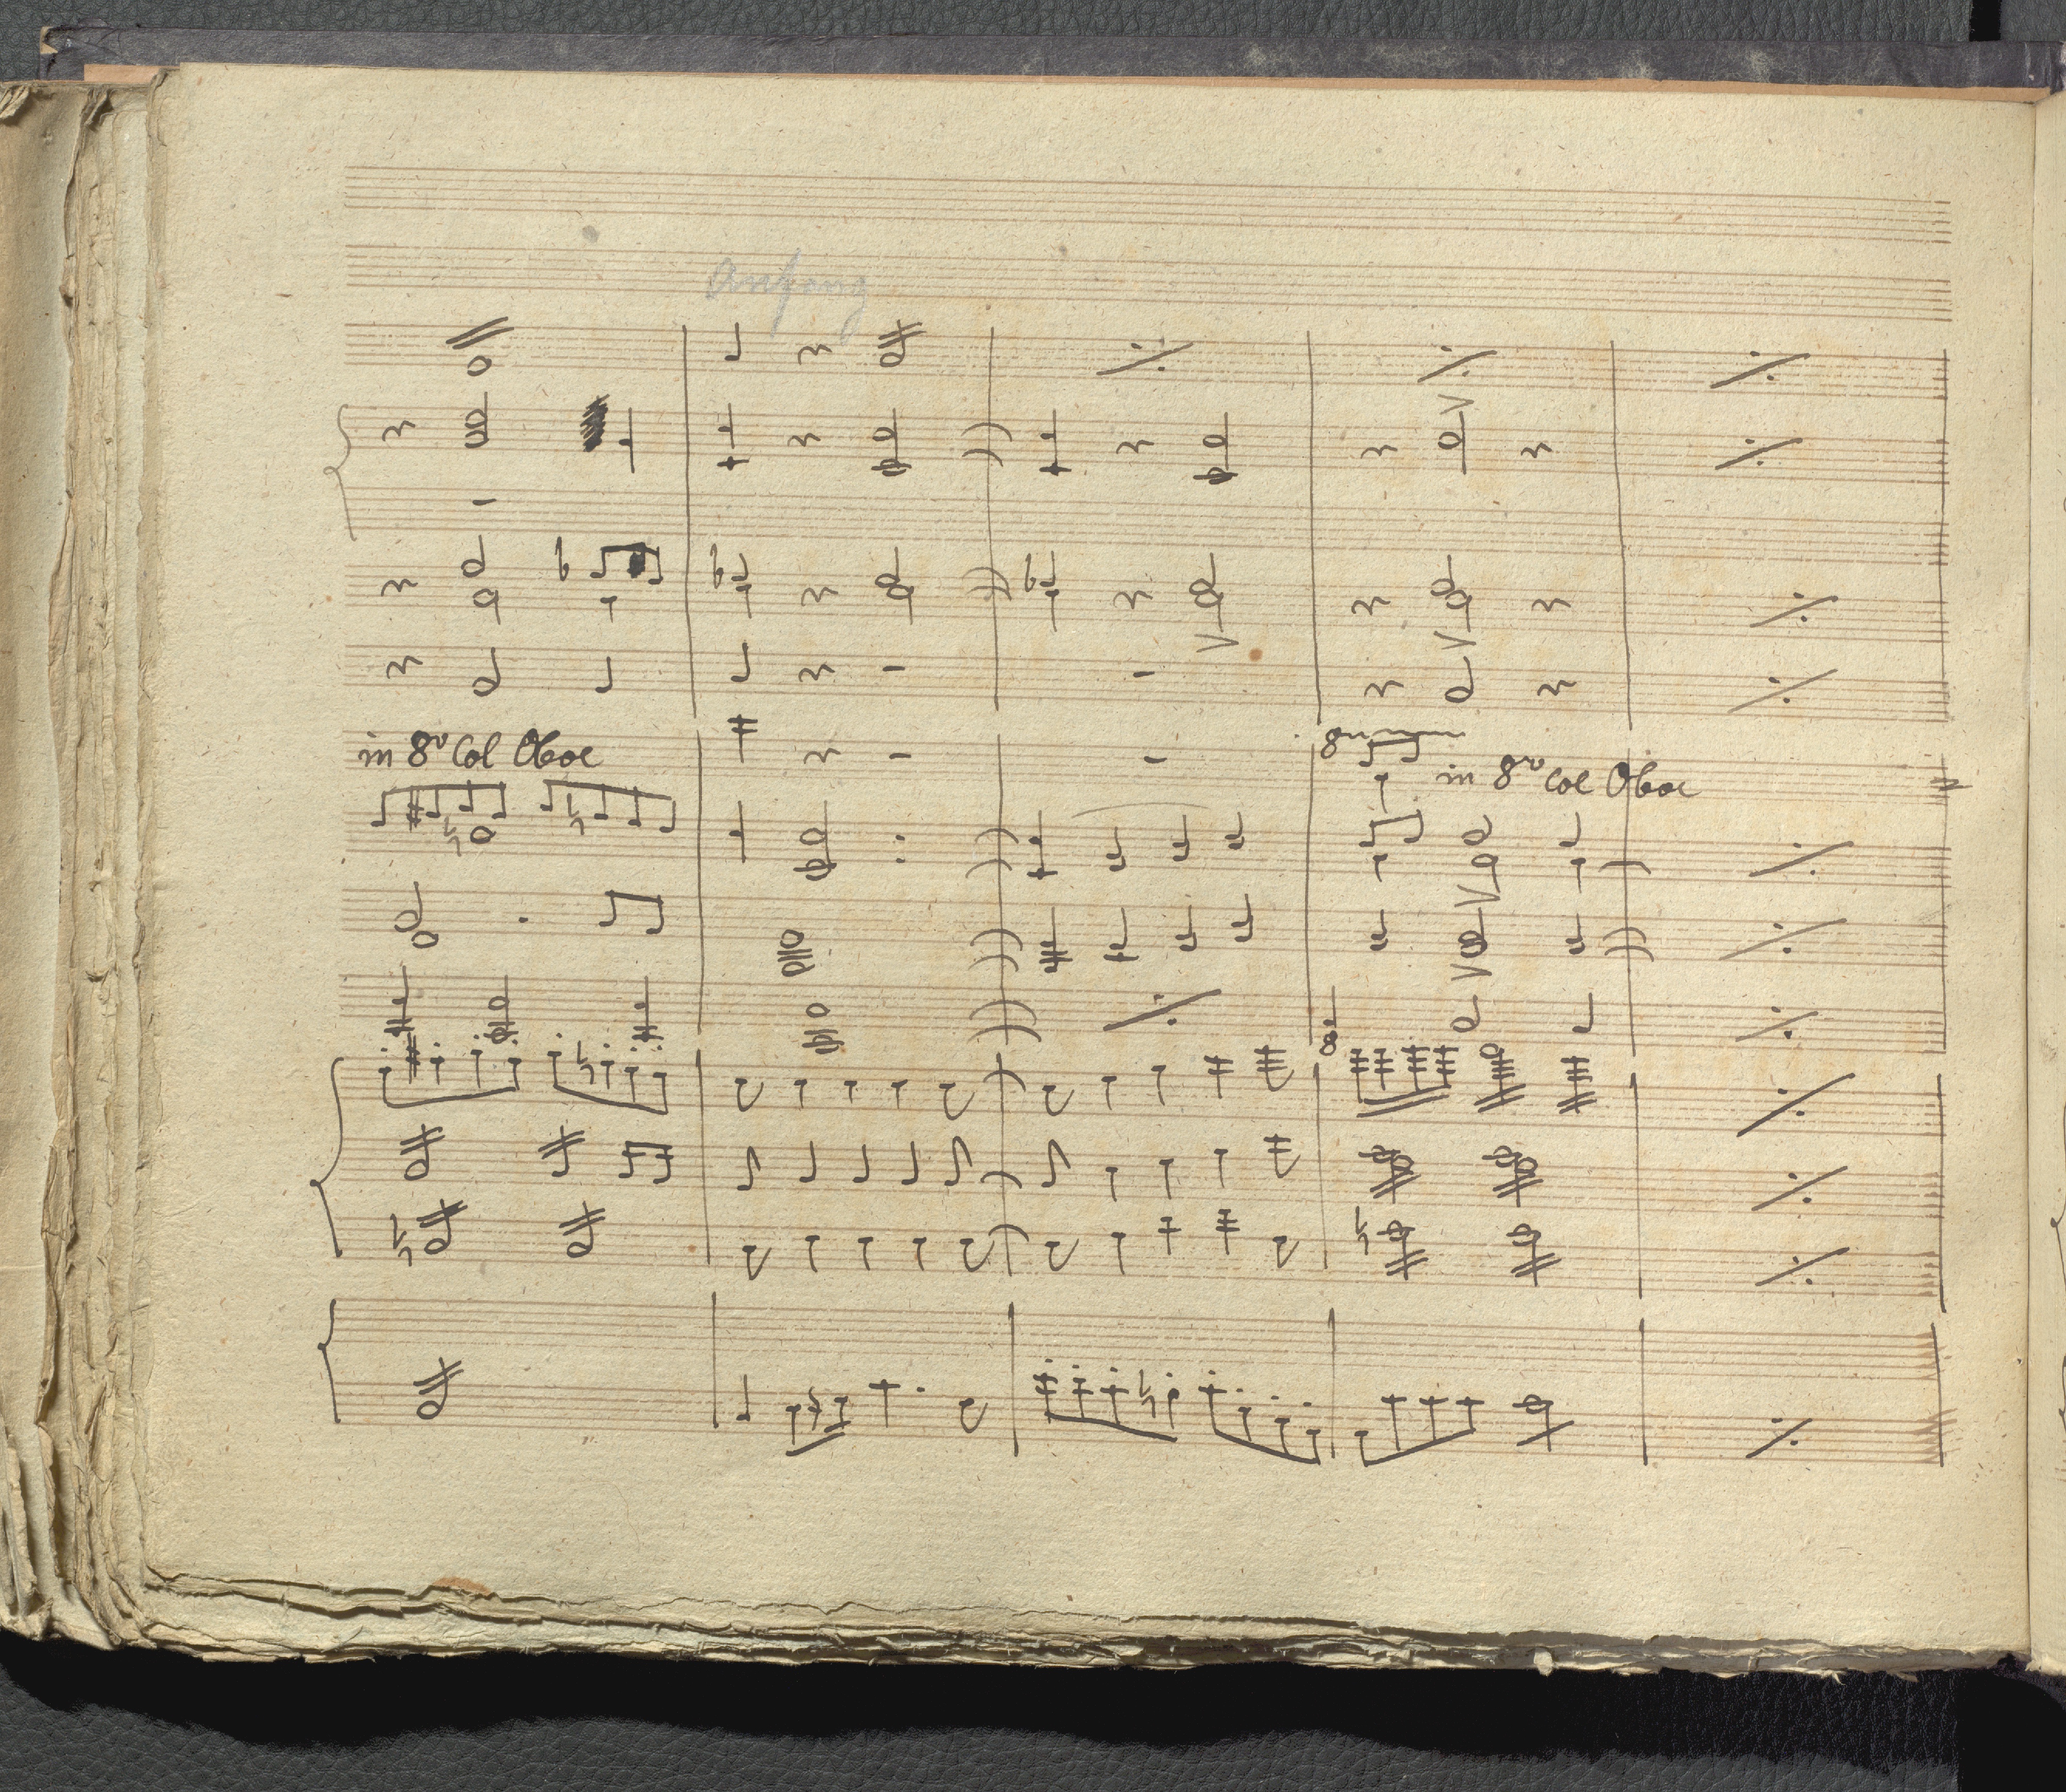 Anfang
in 8va Col Oboe
8va
in 8va Col Oboe